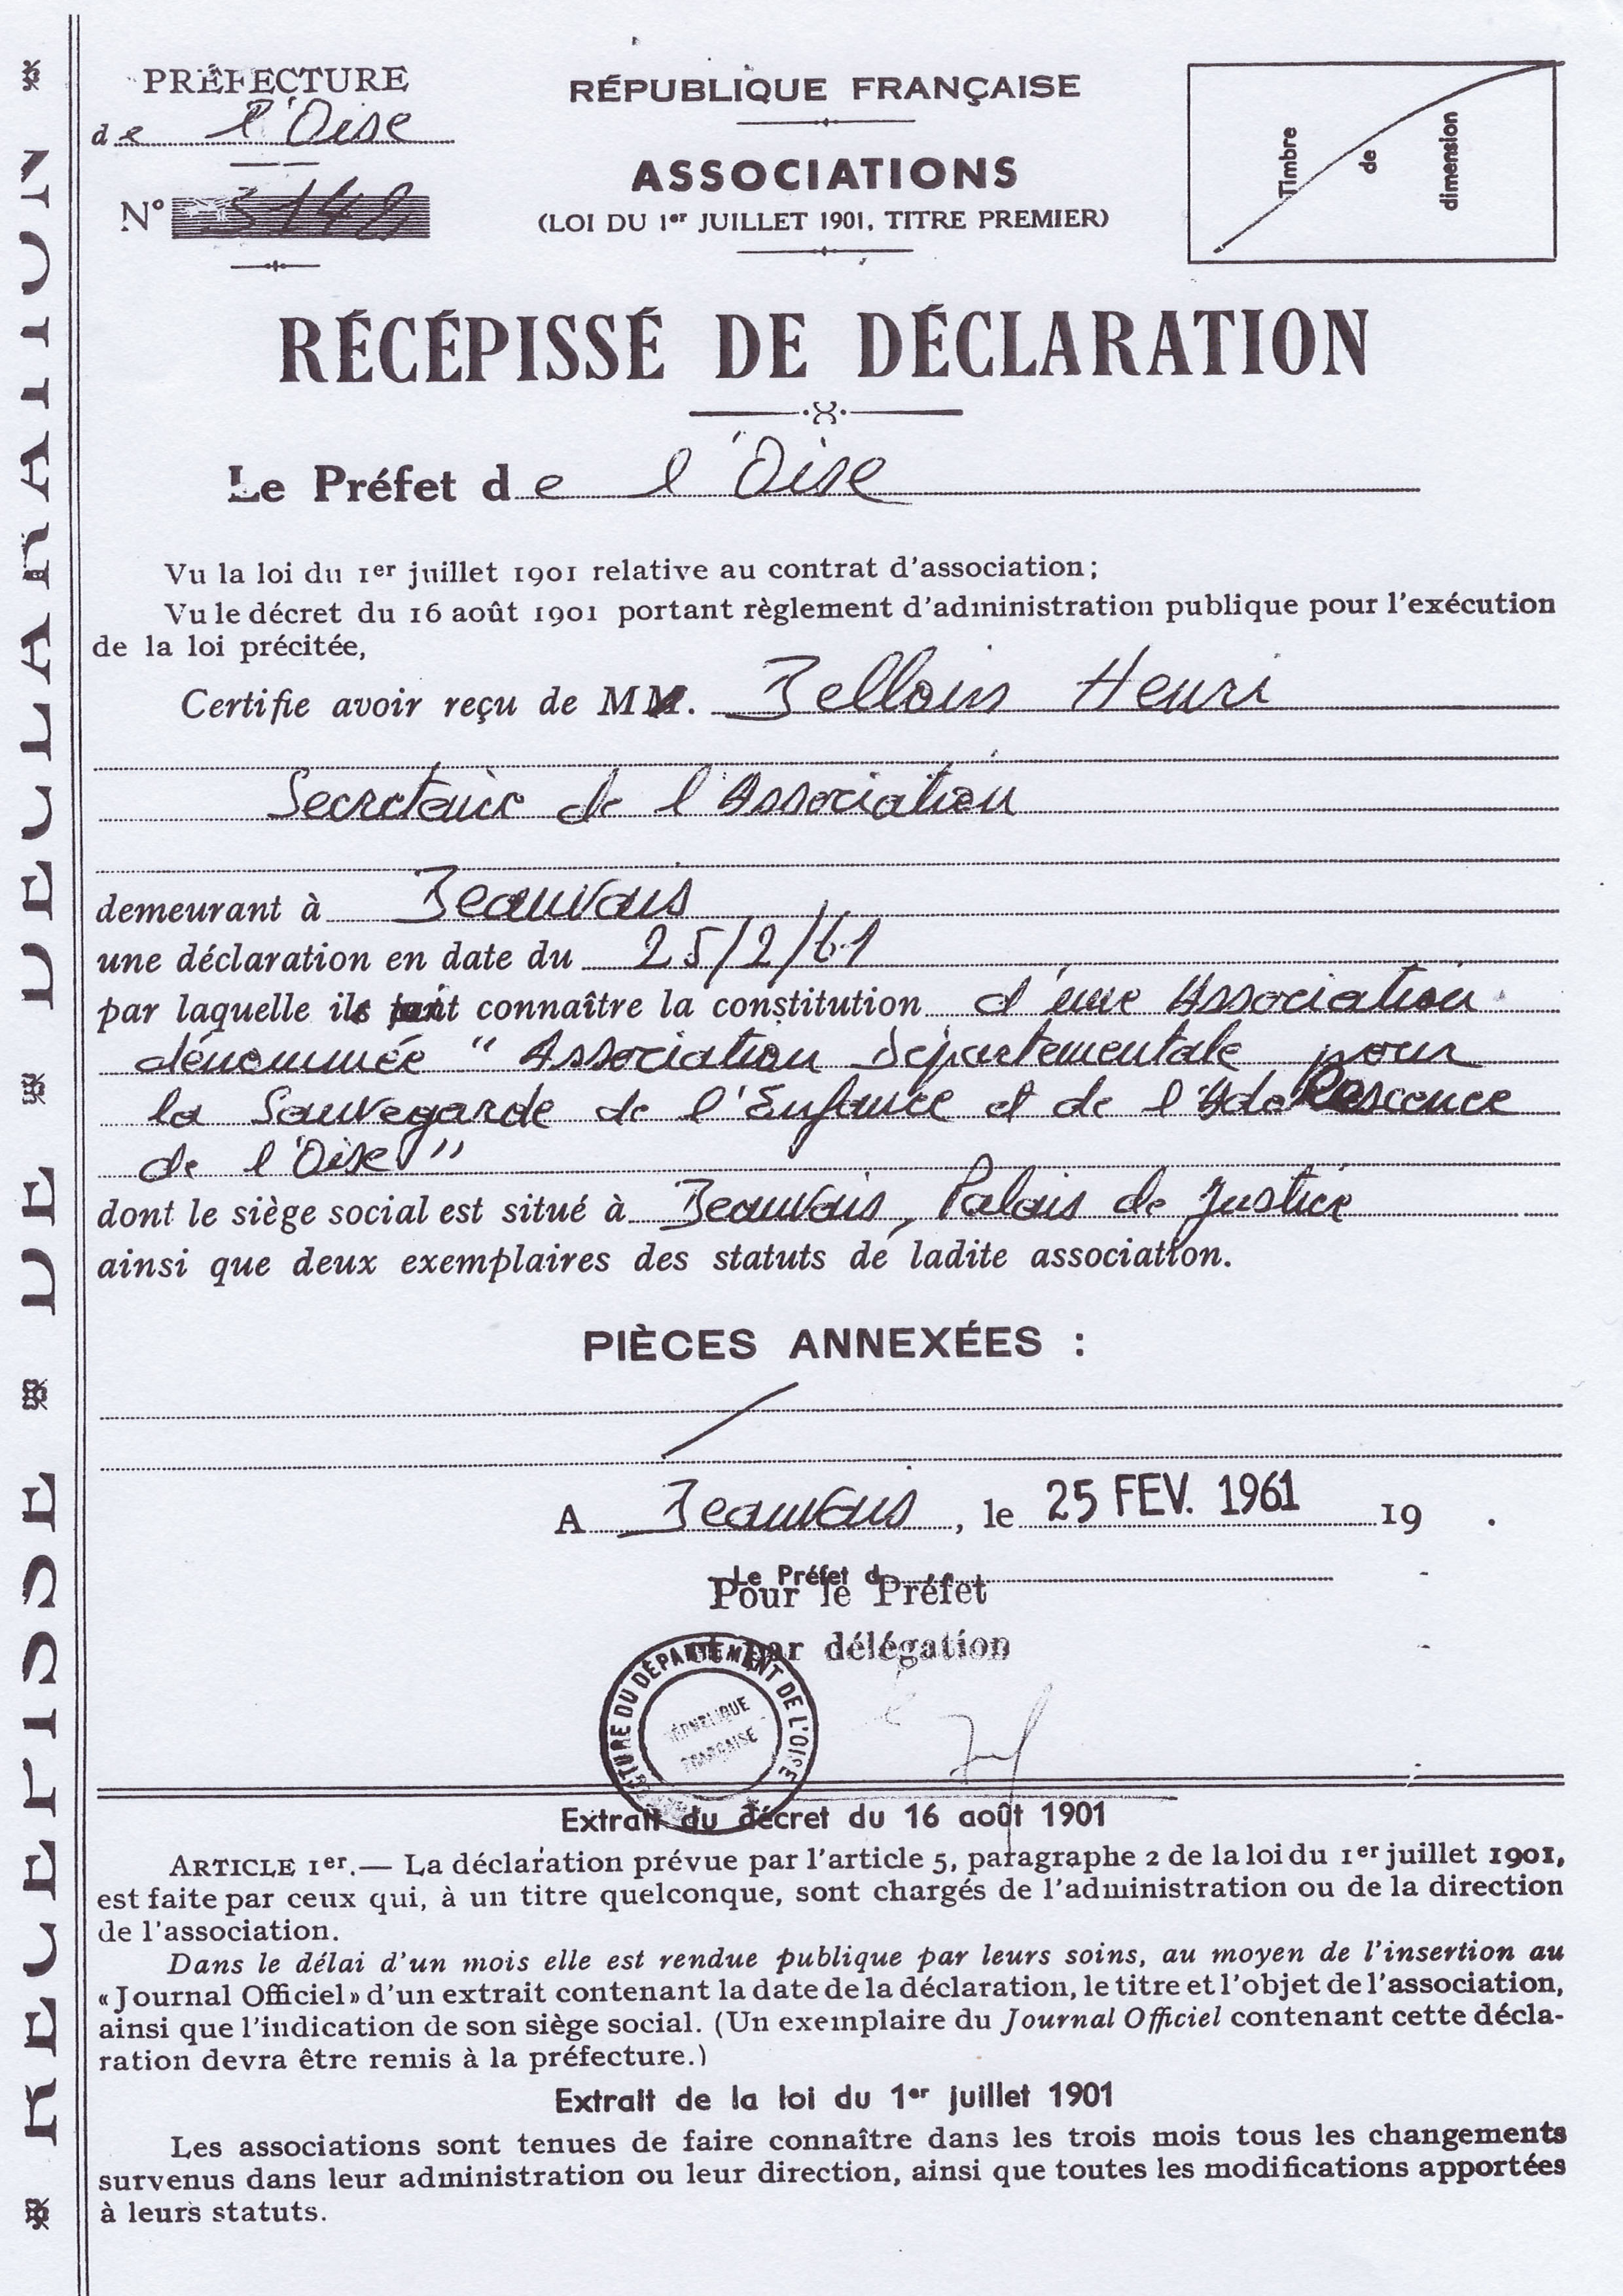 RÉCÉPISSÉ DE DÉCLARATION
PRÉFECTURE
de l'Oise
N° 3148
RÉPUBLIQUE FRANÇAISE
ASSOCIATIONS
(LOI DU 1er JUILLET 1901, TITRE PREMIER)
Timbre
de
dimension
RÉCÉPISSÉ DE DÉCLARATION
Le Préfet de l'Oise
Vu la loi du 1er juillet 1901 relative au contrat d'association;
Vu le décret du 16 août 1901 portant règlement d'administration publique pour l'exécution
de la loi précitée,
Certifie avoir reçu de M. Henri
Secretaire de l'Association
demeurant à Beauvais
une déclaration en date du 25/2/61
par laquelle il fait connaître la constitution d'une Association
dénommée " Association Départementale pour
la Sauvegarde de l'Enfance et de l'Adolescence
de l'Oise"
dont le siège social est situé à Beauvais, Palais de Justice
ainsi que deux exemplaires des statuts de ladite association.
PIÈCES ANNEXÉES :
A Beauvais, le 25 FEV. 1961 19 .
Le Préfet d
Pour le Préfet
par délégation
DU DÉPARTEMENT DE L'OISE
RÉPUBLIQUE
FRANÇAISE
Extrait du décret du 16 août 1901
ARTICLE 1er.— La déclaration prévue par l'article 5, paragraphe 2 de la loi du 1er juillet 1901,
est faite par ceux qui, à un titre quelconque, sont chargés de l'administration ou de la direction
de l'association.
Dans le délai d'un mois elle est rendue publique par leurs soins, au moyen de l'insertion au
«Journal Officiel» d'un extrait contenant la date de la déclaration, le titre et l'objet de l'association,
ainsi que l'indication de son siège social. (Un exemplaire du Journal Officiel contenant cette décla-
ration devra être remis à la préfecture.)
Extrait de la loi du 1er juillet 1901
Les associations sont tenues de faire connaître dans les trois mois tous les changements
survenus dans leur administration ou leur direction, ainsi que toutes les modifications apportées
à leurs statuts.